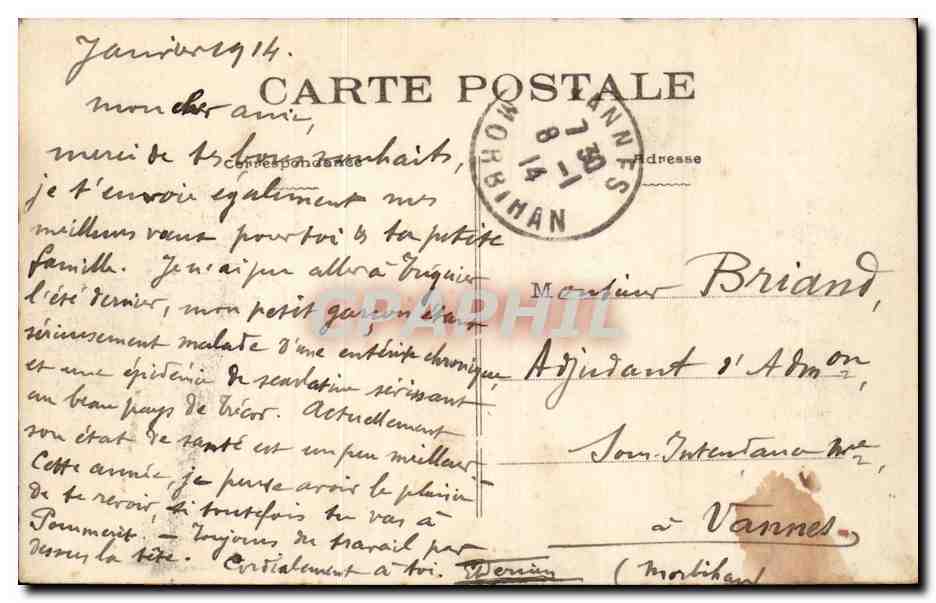 Janvier 1914.
CARTE POSTALE
Correspondance
Adresse
VANNES
7 30
8 -1
14
MORBIHAN
mon cher ami,
merci de tes bons souhaits,
je t'envoie également mes
meilleurs vœux pour toi et ta petite
famille. Je n'ai pu aller à Tréguier
l'été dernier, mon petit garçon étant
sérieusement malade d'une entérite chronique,
et une épidémie de scarlatine sévissant
au beau pays de Trécor. Actuellement
son état de santé est un peu meilleur
Cette année, je pense avoir le plaisir
de te revoir, si toutefois tu vas à
Pommerit. — Toujours du travail par
dessus la tête. Cordialement à toi.
Monsieur Briand,
Adjudant d'Admon,
Sous-Intendance Mre,
à Vannes
(Morbihan
CPAPHIL